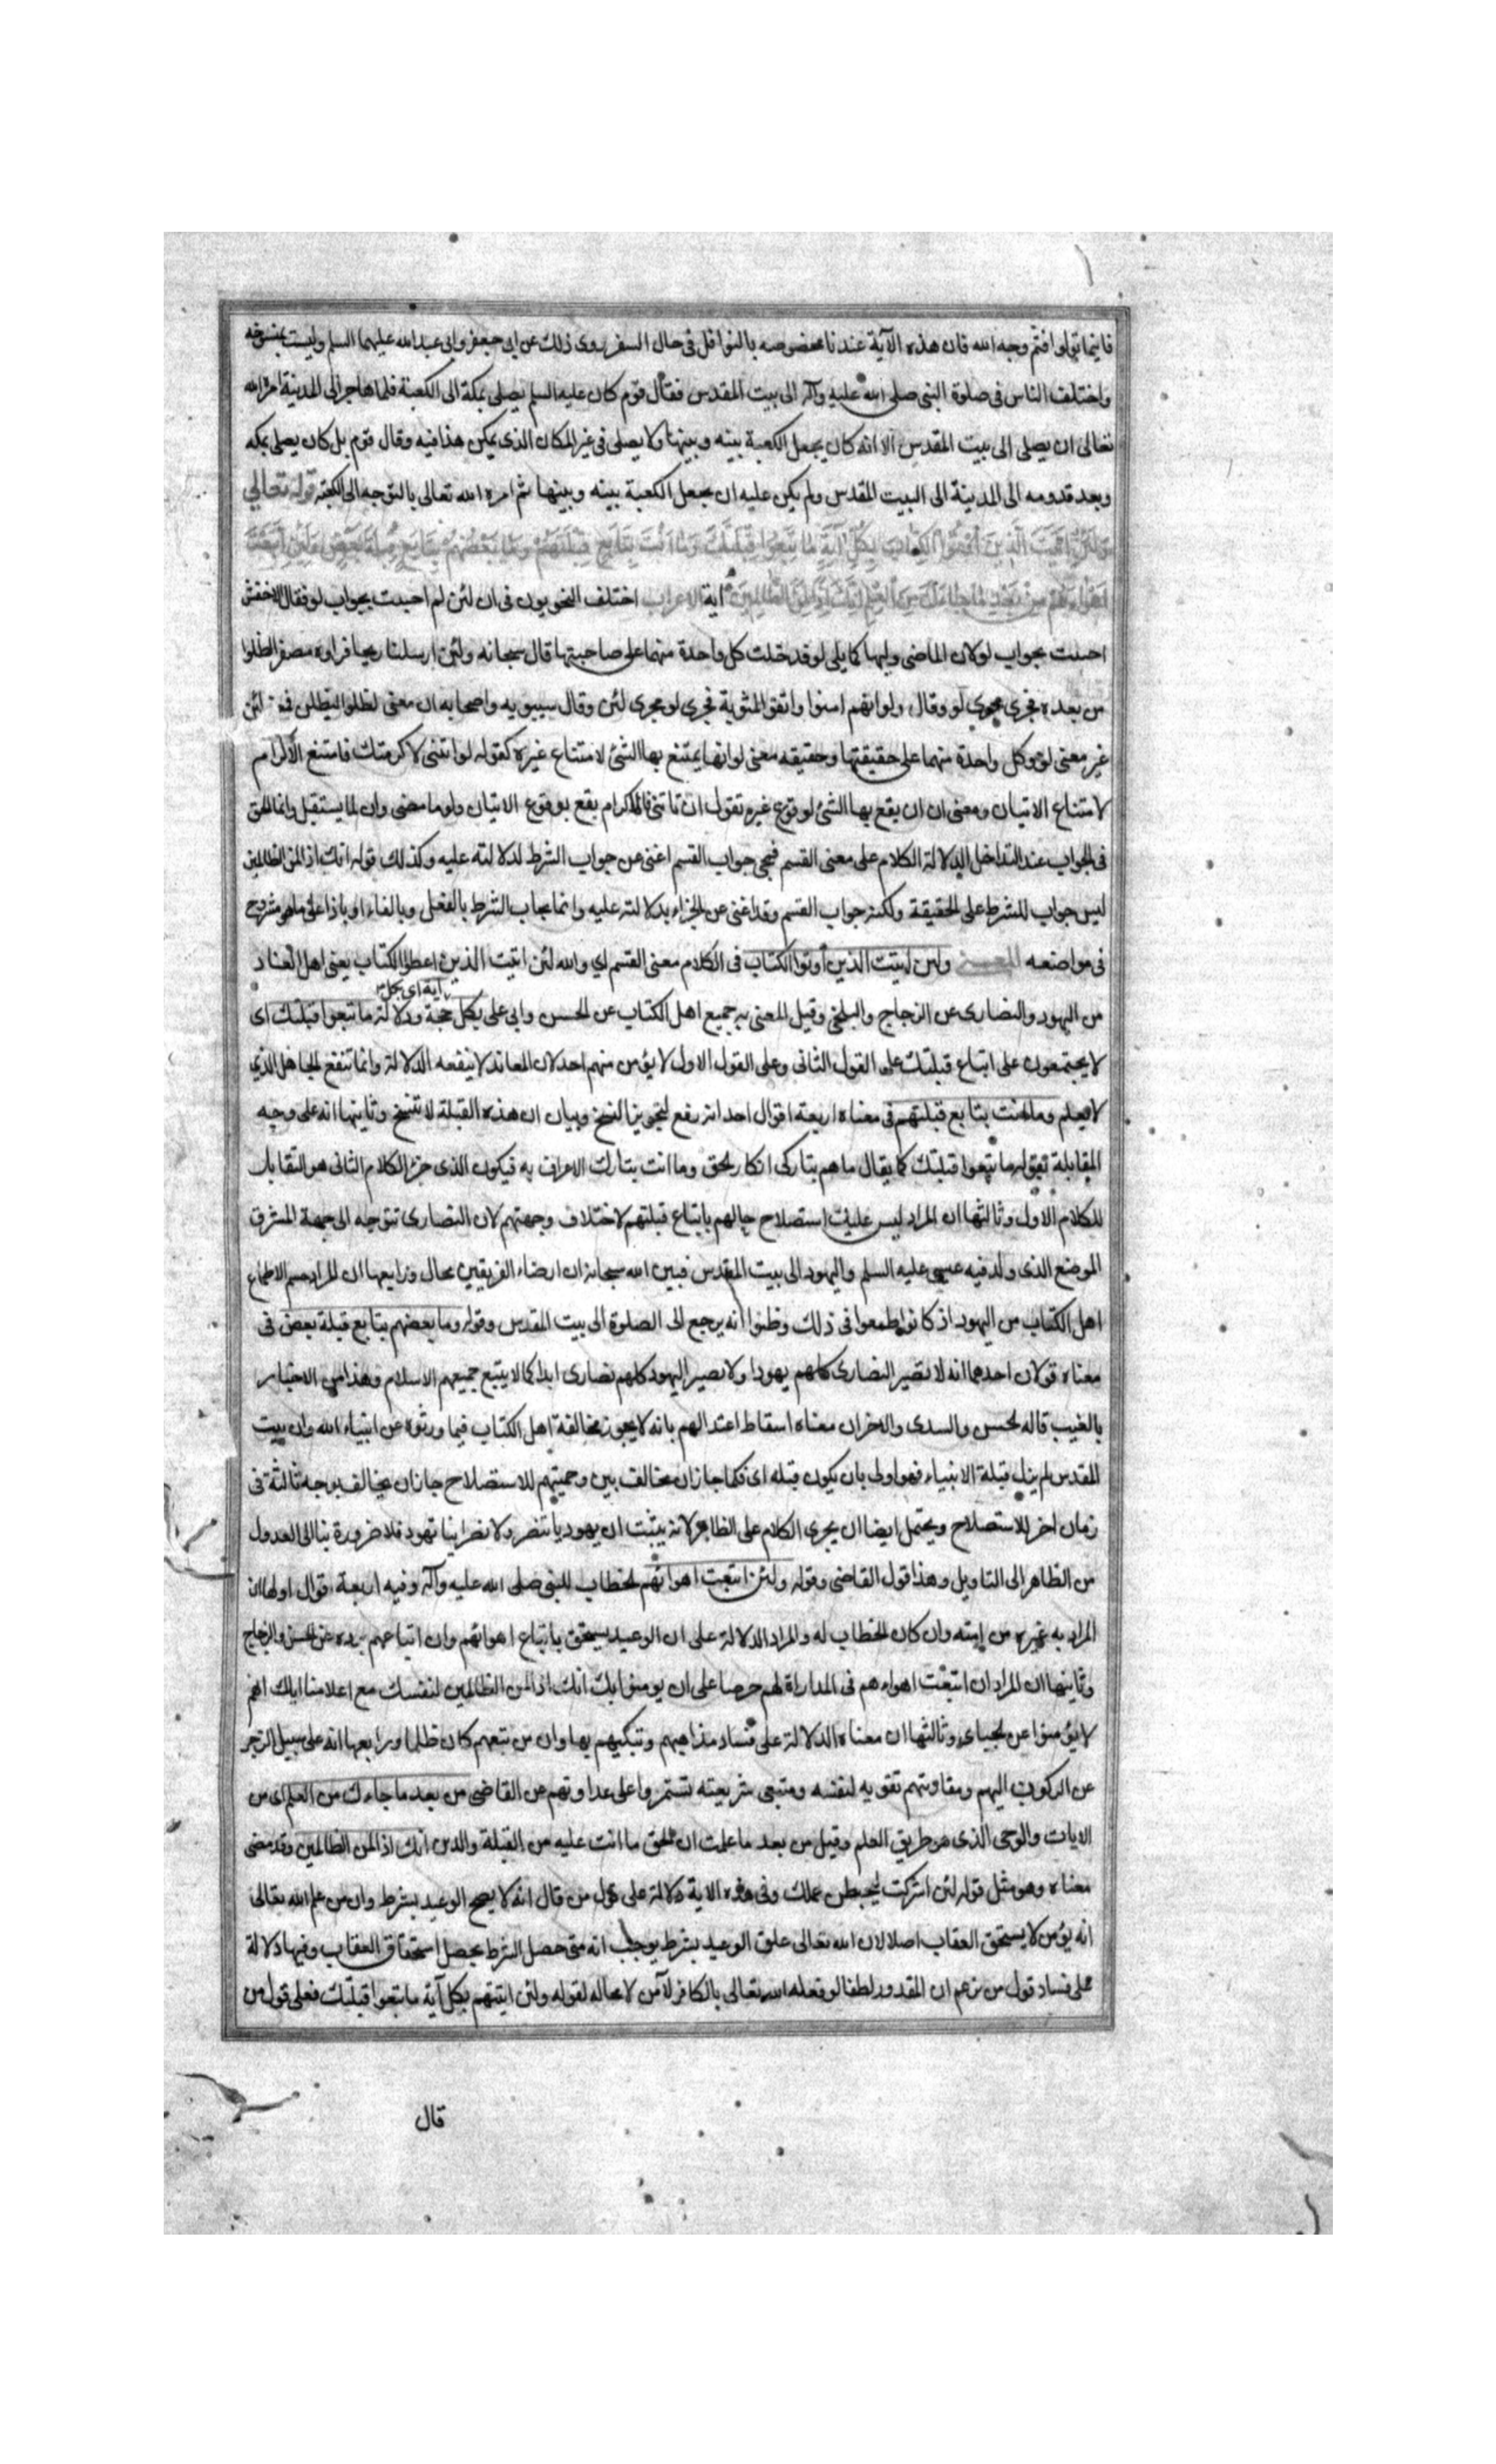 فاينما تولوا فثم وجه الله فان هذه الآية عندنا مخصوصه بالنوافل فى حال السفر روى ذلك عن ابى جعفر وابى عبدالله عليهما السلم وليست بمنسوخه
واختلف الناس فى صلوة النبى صلى الله عليه وآله الى بيت المقدس فقال قوم كان عليه السلم يصلى بمكة الى الكعبة فلما هاجر الى المدينة امره الله
تعالى ان يصلى الى بيت المقدس الا انه كان يجعل الكعبة بينه وبينها ولا يصلى فى غير المكان الذى يمكن هذا فيه وقال قوم بل كان يصلى بمكه
وبعد قدومه الى المدينة الى البيت المقدس ولم يكن عليه ان يجعل الكعبة بينه وبينها ثم امره الله تعالى بالتوجه الى الكعبة قوله تعالى
وَلَئِنْ اَتَيْتَ الَّذينَ اُوتُوا الْكِتابَ بِكُلِّ آيَةٍ ما تَبِعُوا قِبْلَتَكَ وَما اَنْتَ بِتابِعٍ قِبْلَتَهُمْ وَما بَعْضُهُمْ بِتابِعٍ قِبْلَةَ بَعْضٍ وَلَئِنِ اتَّبَعْتَ
اَهْواءَهُمْ مِنْ بَعْدِ ما جاءَكَ مِنَ الْعِلْمِ اِنَّكَ اِذًا لَمِنَ الظّالِمينَ آية الاعراب اختلف النحويون فى ان لئن لم اجيبت بجواب لو فقال الاخفش
اجيبت بجواب لو لان الماضى وليها كما يلى لو فدخلت كل واحدة منهما على صاحبتها قال سبحانه ولئن ارسلنا ريحا فراوه مصفرا لظلوا
من بعده فجرى مجرى لو وقال ولو انهم امنوا واتقوا لمثوبة فجرى لو مجرى لئن وقال سيبويه واصحابه ان معنى لظلوا ليظلن فمعنى لئن
غير معنى لو وكل واحدة منهما على حقيقتها وحقيقه معنى لو انها يمتنع بها الشئ لامتناع غيره كقوله لو اتتنى لاكرمتك فامتنع الاكرام
لامتناع الاتيان ومعنى ان ان يقع بها الشئ لوقوع غيره تقول ان تاتنى فالاكرام يقع بوقوع الاتيان ولو ما مضى وان لما يستقبل وانما الحق
فى الجواب عند التداخل لدلالة الكلام على معنى القسم فجى جواب القسم اغنى عن جواب الشرط لدلالته عليه وكذلك قوله انك اذا لمن الظالمين
ليس جواب للشرط على الحقيقة ولكنه جواب القسم وقد اغنى عن الجزاء بدلالته عليه وانما يجاب الشرط بالفعل وبالفاء او باذا على ما هو مشروح
فى مواضعه المعنى ولئن اتيت الذين أوتوا الكتاب فى الكلام معنى القسم اي والله لئن اتيت الذين اعطوا الكتاب يعنى اهل العناد
من اليهود والنصارى عن الزجاج والبلخى وقيل المعنى به جميع اهل الكتاب عن الحسن وابى على بكل آية اى بكل حجة ودلالة ما تبعوا قبلتك اى
لا يجتمعون على اتباع قبلتك على القول الثانى وعلى القول الاول لا يؤمن منهم احد لان المعاند لا ينفعه الدلالة وانما تنفع الجاهل الذي
لا يعلم وما انت بتابع قبلتهم فى معناه اربعة اقوال احدا انه رفع لتجويز النسخ وبيان ان هذه القبلة لا تنسخ وثانيها انه على وجه
المقابلة لقوله ما تبعوا قبلتك كما يقال ما هم بتاركى انكار الحق وما انت بتارك الاعراف به فيكون الذى جرّ الكلام الثانى هو التقابل
للكلام الاول وثالثها ان المراد ليس عليك استصلاح حالهم باتباع قبلتهم لاختلاف وجهتهم لان النصارى تتوجه الى جهة المشرق
الموضع الذى ولد فيه عيسى عليه السلم واليهود الى بيت المقدس فبين الله سبحانه ان ارضاء الفريقين محال ورابعها ان المراد حسم الاطماع
اهل الكتاب من اليهود اذ كانوا طمعوا فى ذلك وظنوا انه يرجع الى الصلوة الى بيت المقدس وقوله وما بعضهم بتابع قبلة بعض فى
معناه قولان احدهما انه لا تصير النصارى كلهم يهودا ولا تصير اليهود كلهم نصارى ابدا كما لا يتبع جميعهم الاسلام وهذا من الاخبار
بالغيب قاله الحسن والسدى والاخر ان معناه اسقاط اعتدالهم بانه لا يجوز مخالفة اهل الكتاب فيما ورثوه عن انبياء الله وان بيت
المقدس لم يزل قبلة الانبياء فهو اولى بان يكون قبله اى فكما جاز ان مخالف بين وجهتيهم للاستصلاح جاز ان يخالف بوجه ثالثة فى
زمان اخر للاستصلاح ويحتمل ايضا ان يجرى الكلام على الظاهر لانه يثبت ان يهوديا تنصر ولا نصرانيا تهود فلا ضرورة بنا الى العدول
من الظاهر الى التاويل وهذا قول القاضى وقوله ولئن اتبعت اهوائهم الخطاب للنبى صلى الله عليه وآله وفيه اربعة اقوال اولها ان
المراد به غيره من امته وان كان الخطاب له والمراد الدلالة على ان الوعيد يستحق باتباع اهوائهم وان اتباعهم ردة عن الحسن والزجاج
وثانيها ان المراد ان اتبعت اهواءهم فى المداراة لهم حرصا على ان يومنوا بك انك اذا لمن الظالمين لنفسك مع اعلامنا اياك انهم
لا يؤمنوا عن الجبائى وثالثها ان معناه الدلالة على فساد مذاهبهم وتبكيتهم بها وان من تبعهم كان ظلما ورابعها انه على سبيل الزجر
عن الركون اليهم ومقاومتهم تقويه لنفسه ومتبعى شريعته تستمروا على عداوتهم عن القاضى من بعد ما جاءك من العلم اى من
الايات والوحى الذى هو طريق العلم وقيل من بعد ما علمت ان الحق ما انت عليه من القبلة والدين انك اذا لمن الظالمين وقد مضى
معناه وهو مثل قوله لئن اشركت ليحبطن عملك وفى هذه الاية دلالة على قول من قال انه لا يصح الوعيد بشرط وان من علم الله تعالى
انه يؤمن لا يستحق العقاب اصلا لان الله تعالى علق الوعيد بشرط يوجب انه متى حصل الشرط يحصل استحقاق العقاب وفيها دلالة
على فساد قول من زعم ان المقدور لطفا لو فعله الله تعالى بالكافر لآمن لا محاله لقوله ولئن اتيتهم بكل آية ما تبعوا قبلتك فعلى قول من
قال